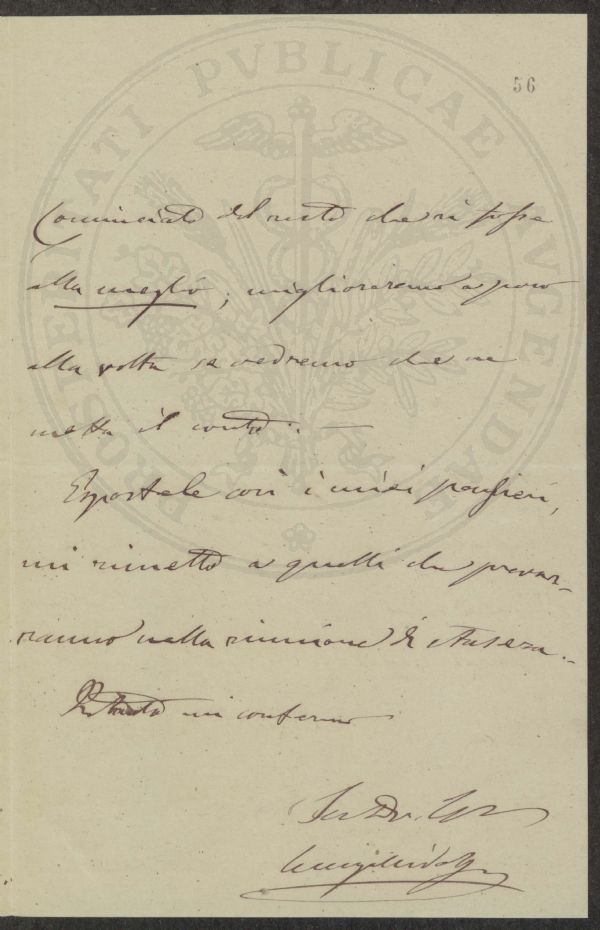 PROSPERITATI PVBLICAE AVGENDAE
56
Cominciate del resto che si possa
alla meglio; miglioreremo a poco
alla volta se vedremo che ne
metta il conto. —
Espostele così i miei pensieri,
mi rimetto a quelli che prevar-
ranno nella riunione di stasera. -
mi confermo